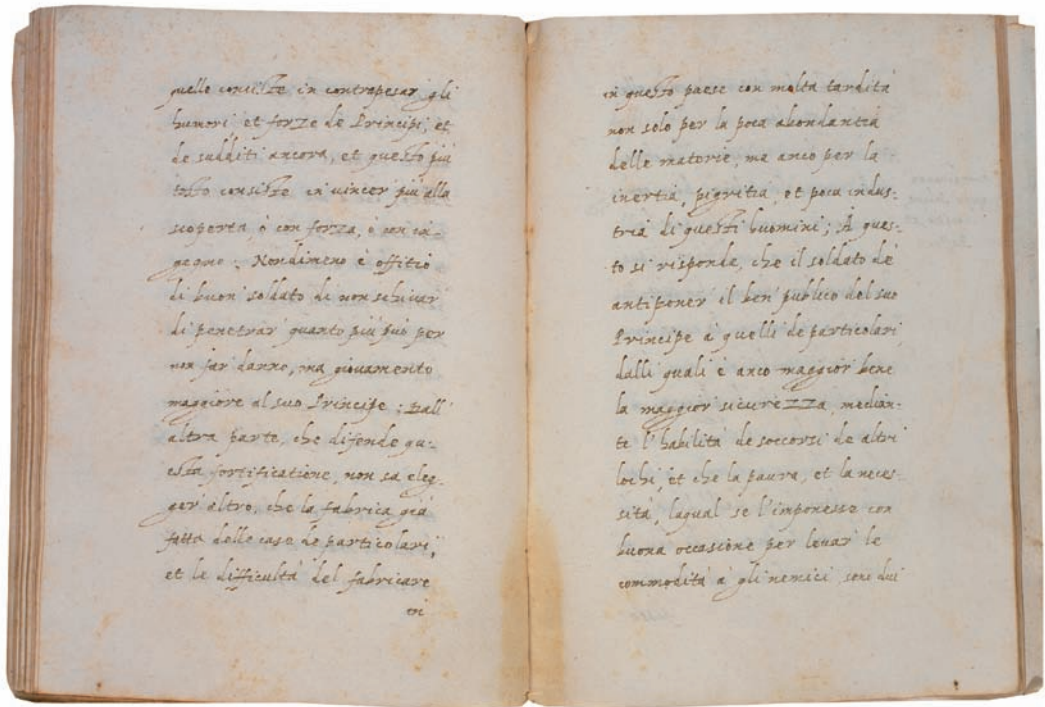 quello consiste in contrapesar gli
humori, et forze de Principi, et
de sudditi ancora, et questo più
tosto consiste in vincer più alla
scoperta, ò con forza, ò con in-
gagno: Nondimeno è offitio
di buon soldato di non schivar
di penetrar quanto più può per
non far danno, ma giovamento
maggiore al suo Principe: Dall'
altra parte, che difende qu-
esta fortificatione, non sa eleg-
ger altro, che la fabrica già
fatta delle case de particolari,
et le difficultà del fabricare
in
in questo paese con molta tardità
non solo per la poca abondantia
delle matorie, ma anco per la
inertia, pigritia, et poca indus-
tria di questi huomini; A ques-
to si risponde, che il soldato dè
antiponer il ben publico del suo
Principe à quelli de particolari
dalli quali è anco maggior bene
la maggior sicurezza, median-
te l'habilità de soccorsi de altri
lochi, et che la paura, et la neces-
sità, laqual se l'imponesse con
buona occasione per levar le
commodità à gli nemici sono dui